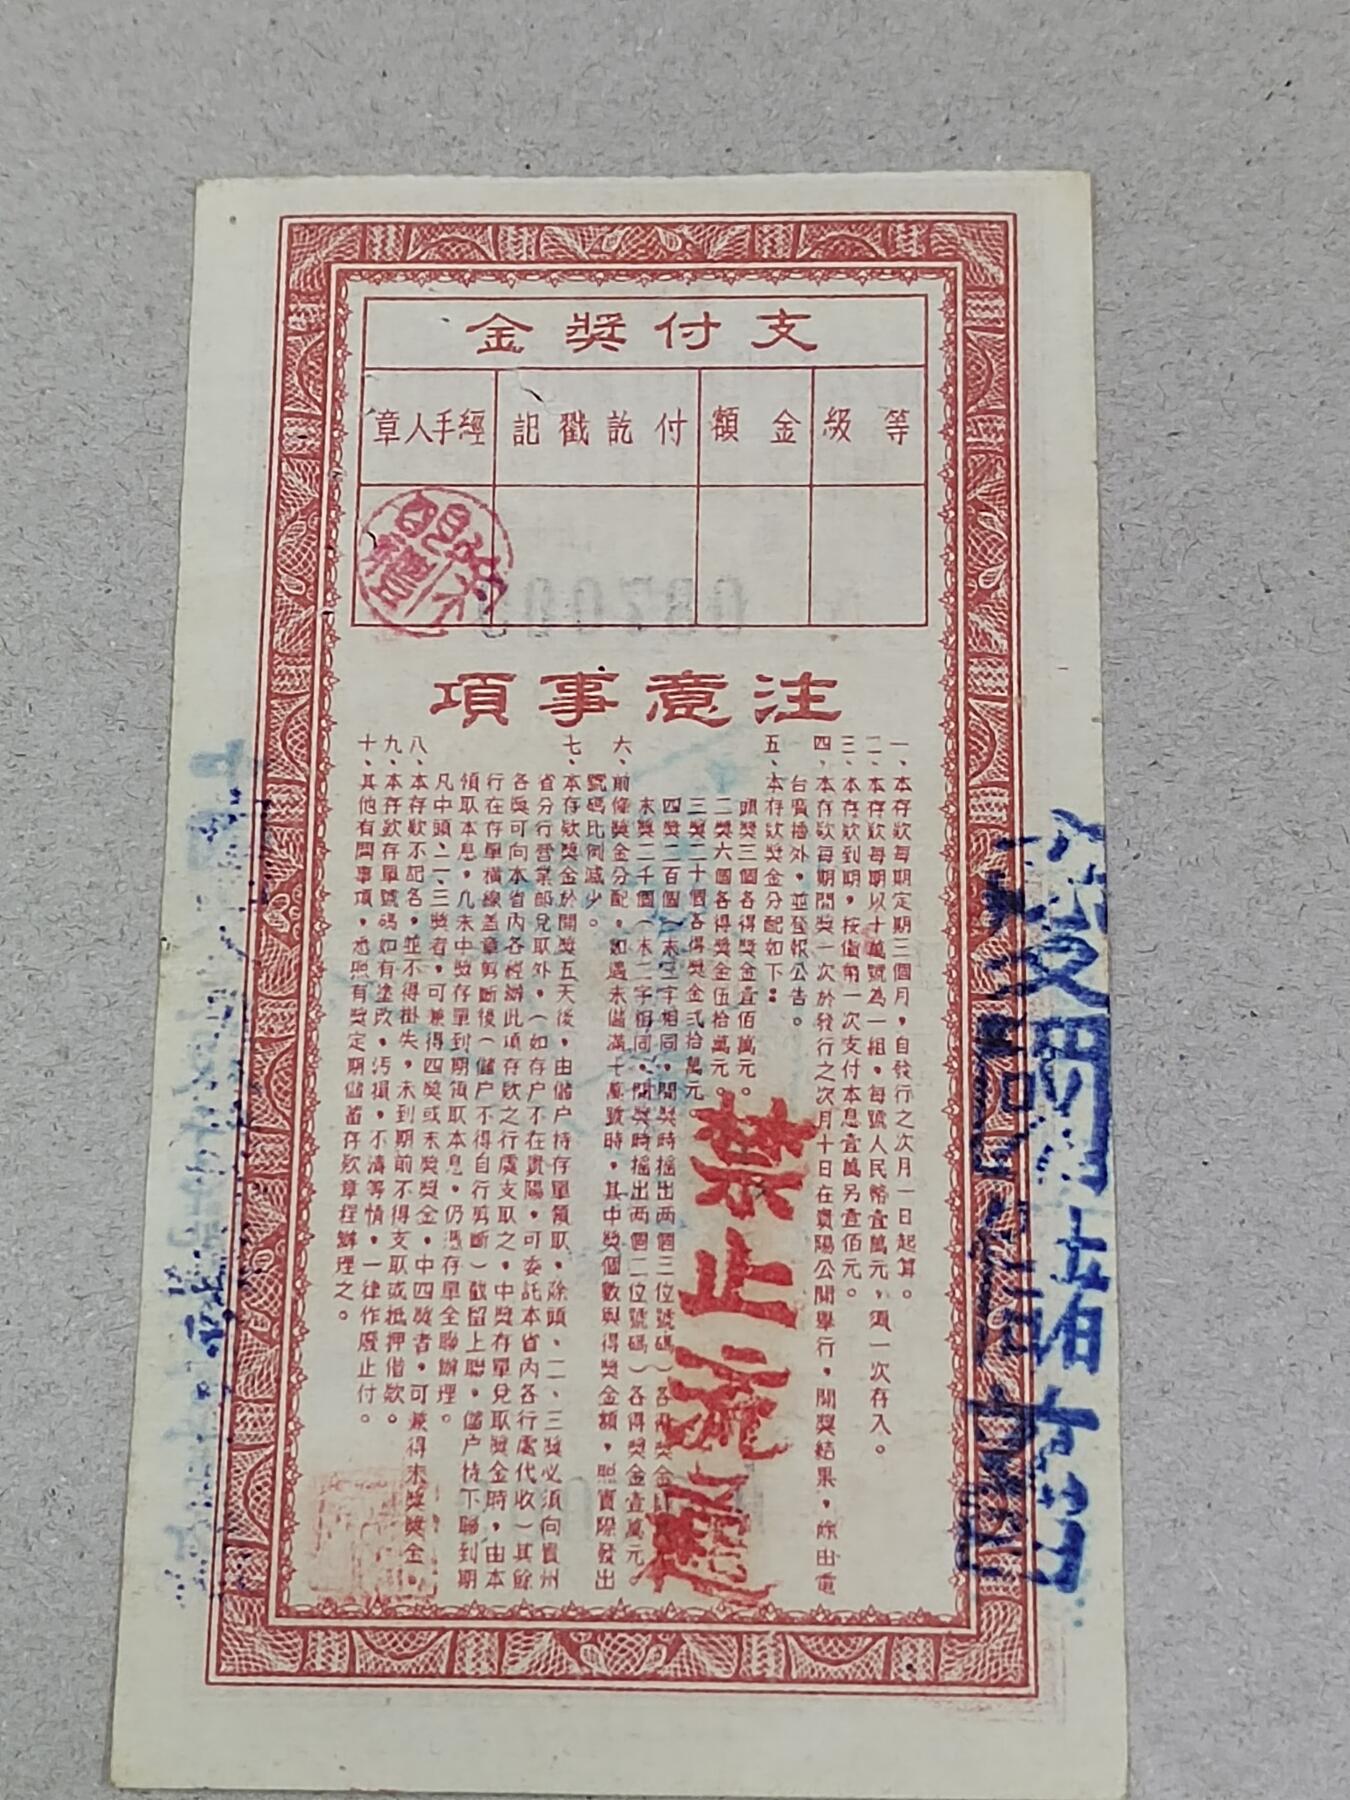 支付獎金
等級
金額
付訖戳記
經手人章
注意事項
一、本存款每期定期三個月，自發行之次月一日起算。
二、本存款每期以十萬號為一組，每號人民幣壹萬元，須一次存入。
三、本存款到期，按值幣一次支付本息壹萬另壹佰元。
四、本存款每期開獎一次於發行之次月十日在貴陽公開舉行，開獎結果，除由電
台廣播外，並登報公告。
五、本存款獎金分配如下：
頭獎三個各得獎金壹佰萬元。
二獎六個各得獎金伍拾萬元。
三獎二十個各得獎金弍拾萬元。
四獎二百個（末三字相同，開獎時搖出两個三位號碼）各得獎金
末獎二千個（末二字相同，開獎時搖出两個二位號碼）各得獎金壹萬元。
六、前條獎金分配，如遇未儲滿十萬號時，其中獎個數與得獎金額，照實際發出
號碼比例減少。
七、本存款獎金於開獎五天後，由儲户持存單領取，除頭、二、三獎必須向貴州
省分行營業部兌取外，（如存户不在貴陽，可委託本省內各行處代收）其餘
各獎可向本省內各經辦此項存款之行處支取之，中獎存單兌取獎金時，由本
行在存單橫線盖章剪斷後（儲户不得自行剪斷）截留上聯，儲户持下聯到期
領取本息，凡未中獎存單到期領取本息，仍憑存單全聯辦理。
凡中頭、二、三獎者，可兼得四獎或末獎獎金，中四獎者，可兼得末獎獎金。
八、本存款不記名，並不得掛失，未到期前不得支取或抵押借款。
九、本存款存單號碼如有塗改，污損，不清等情，一律作廢止付。
十、其他有關事項，悉照有獎定期儲蓄存款章程辦理之。
禁止流通